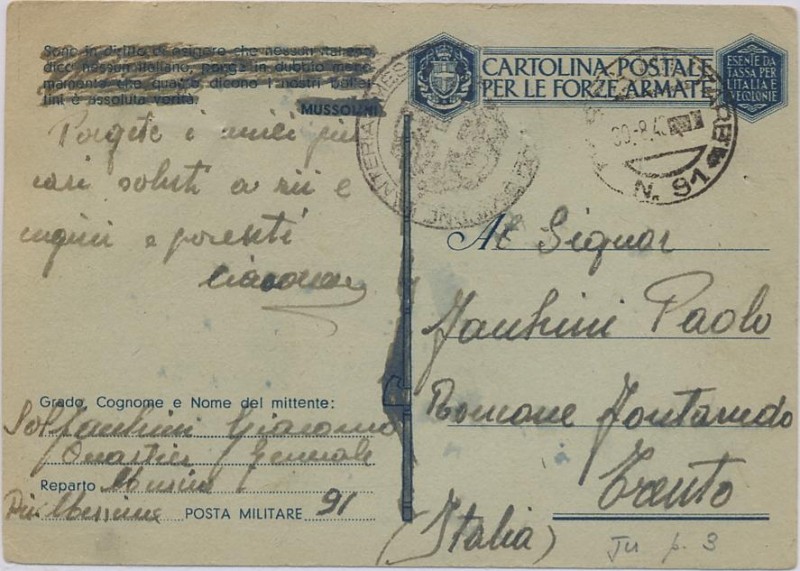 Sono in diritto di esigere che nessun italiano,
dico nessun italiano, ponga in dubbio meno-
mamente che quanto dicono i nostri bollet-
tini è assoluta verità.
MUSSOLINI
Porgete i miei più
cari saluti a zii e
cugini e parenti
Giacomo
Grado, Cognome e Nome del mittente:
Sol Giacomo
Quartier Generale
Reparto
Div Messina POSTA MILITARE 91
CARTOLINA POSTALE
PER LE FORZE ARMATE
ESENTE DA
TASSA PER
L'ITALIA E
COLONIE
N. 91
Al Signor
Paolo
Romone
Trento
(Italia)
p. 3